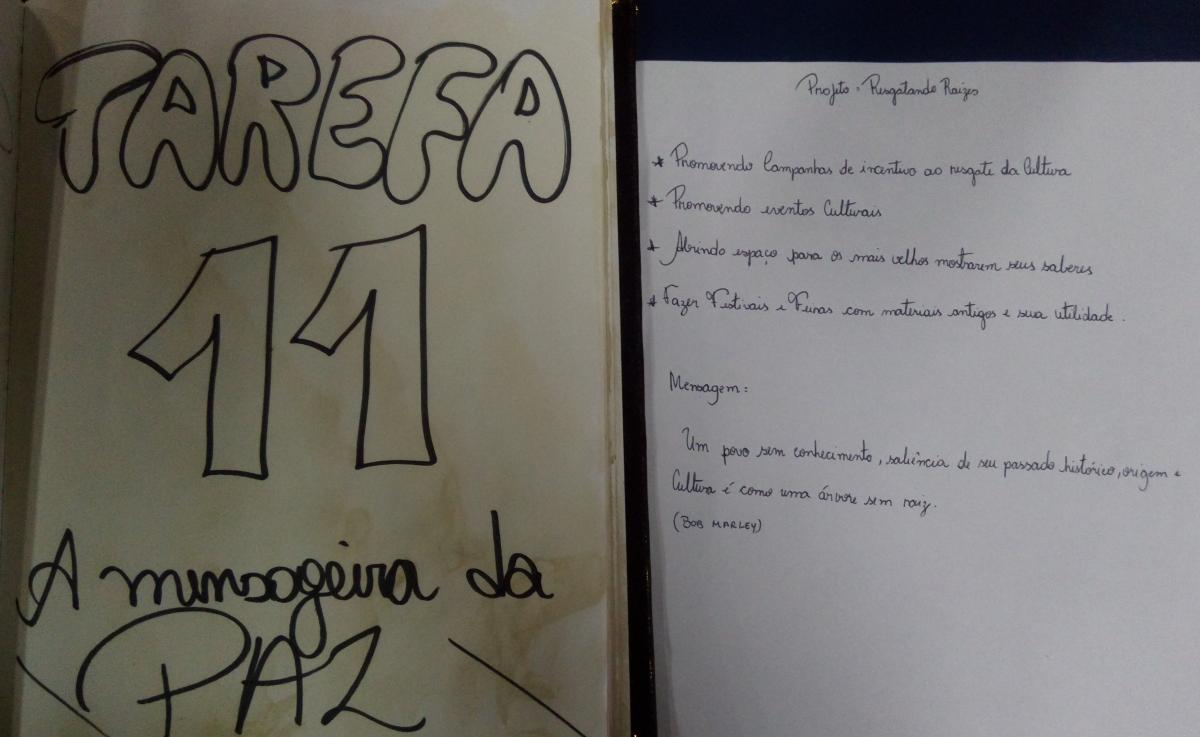 TAREFA
11
A mensageira da
PAZ
Projeto: Resgatando Raizes
* Promovendo Campanhas de incentivo ao resgate da Cultura
* Promovendo eventos Culturais
* Abrindo espaço para os mais velhos mostrarem seus saberes
* Fazer Festivais e Feiras com materiais antigos e sua utilidade.
Mensagem:
Um povo sem conhecimento, saliência de seu passado histórico, origem e
Cultura é como uma árvore sem raiz.
(BOB MARLEY)